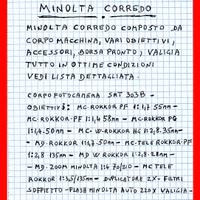 MINOLTA CORREDO
MINOLTA CORREDO COMPOSTO DA
CORPO MACCHINA, VARI OBIETTIVI,
ACCESSORI, BORSA PRONTO, VALIGIA
TUTTO IN OTTIME CONDIZIONI
VEDI LISTA DETTAGLIATA.
CORPO FOTOCAMERA SRT 303B -
OBIETTIVI: MC ROKKOR PF 1:1,7 55mm-
MC ROKKOR-PF 1:1,4 58mm- MC ROKKOR PG
1:1,4-50mm - MC-W-ROKKOR HG 1:2,8,35mm-
- MD-ROKKOR 1:1,4 50mm- MC TELE ROKKOR-PF
1:2,8 135mm - MD W ROKKOR 1:2,8-28mm-
- MD-ZOOM MINOLTA 1:4 70/210 - MC TELE
ROKKOR 1:3,5/135mm- DUPLICATORE 2X- FILTRI
SOFFIETTO - FLASH MINOLTA AUTO 220X VALIGIA -